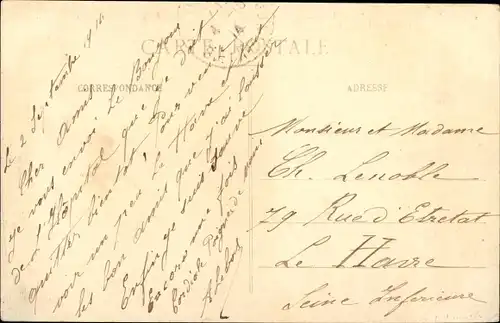 CARTE POSTALE
CORRESPONDANCE
ADRESSE
Le 2 Septembre 1914
Cher Amis
Je vous envoi Le Bonjour
de l'Hôpital que je doit
quitter bientot, pour revenir
voir un peu Le Havre et tous
les bon amis que j'ai laisser
Enfin je suis
Encore une fois
Cordiale Poignée de main
Monsieur et Madame
Ch. Lenoble
79 Rue d'Etretat
Le Havre
Seine Inferieure